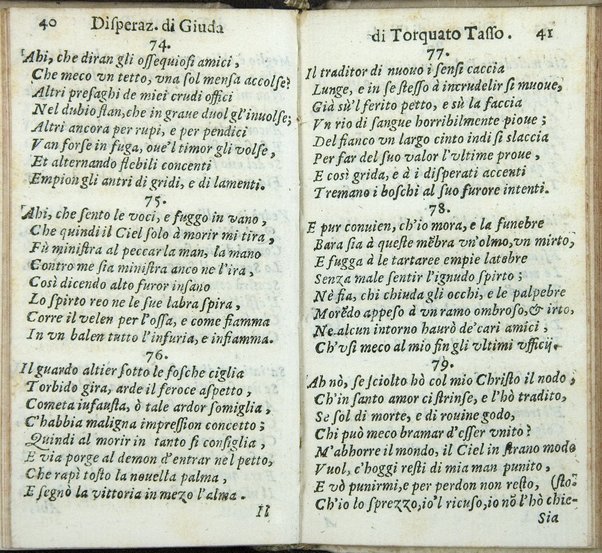 40 Disperaz. di Giuda
74.
Ahi, che diran gli ossequiosi amici,
Che meco vn tetto, vna sol mensa accolse?
Altri presaghi de miei crudi offici
Nel dubio stan, che in graue duol gl'inuolse;
Altri ancora per rupi, e per pendici
Van forse in fuga, oue'l timor gli volse,
Et alternando flebili concenti
Empion gli antri di gridi, e di lamenti.
75.
Ahi, che sento le voci, e fuggo in vano,
Che quindi il Ciel solo à morir mi tira,
Fù ministra al peccar la man, la mano
Contro me sia ministra anco ne l'ira,
Così dicendo alto furor insano
Lo spirto reo ne le sue labra spira,
Corre il velen per l'ossa, e come fiamma
In vn balen tutto l'infuria, e infiamma.
76.
Il guardo altier sotto le fosche ciglia
Torbido gira, arde il feroce aspetto,
Cometa iufausta, ò tale ardor somiglia,
C'habbia maligna impression concetto;
Quindi al morir in tanto si consiglia,
E via porge al demon d'entrar nel petto,
Che rapì tosto la nouella palma,
E segnò la vittoria in mezo l'alma.
Il
di Torquato Tasso. 41
77.
Il traditor di nuouo i sensi caccia
Lunge, e in se stesso à incrudelir si muoue,
Già sù'l ferito petto, e sù la faccia
Vn rio di sangue horribilmente pioue;
Del fianco vn largo cinto indi si slaccia
Per far del suo valor l'vltime proue,
E così grida, e à i disperati accenti
Tremano i boschi al suo furore intenti.
78.
E pur conuien, ch'io mora, e la funebre
Bara sia à queste mẽbra vn'olmo, vn mirto,
E fugga à le tartaree empie latebre
Senza male sentir l'ignudo spirto;
Nè fia, chi chiuda gli occhi, e le palpebre
Morẽdo appeso à vn ramo ombroso, & irto,
Ne alcun intorno haurò de' cari amici,
Ch'vsi meco al mio fin gli vltimi vfficij.
79.
Ah nò, se sciolto hò col mio Christo il nodo,
Ch'in santo amor ci strinse, e l'hò tradito,
Se sol di morte, e di rouine godo,
Chi può meco bramar d'esser vnito?
M'abhorre il mondo, il Ciel in strano modo
Vuol, c'hoggi resti di mia man punito,
E vò punirmi, e per perdon non resto, (sto:
Ch'io lo sprezzo, io'l ricuso, io nõ l'hò chie-
Sia